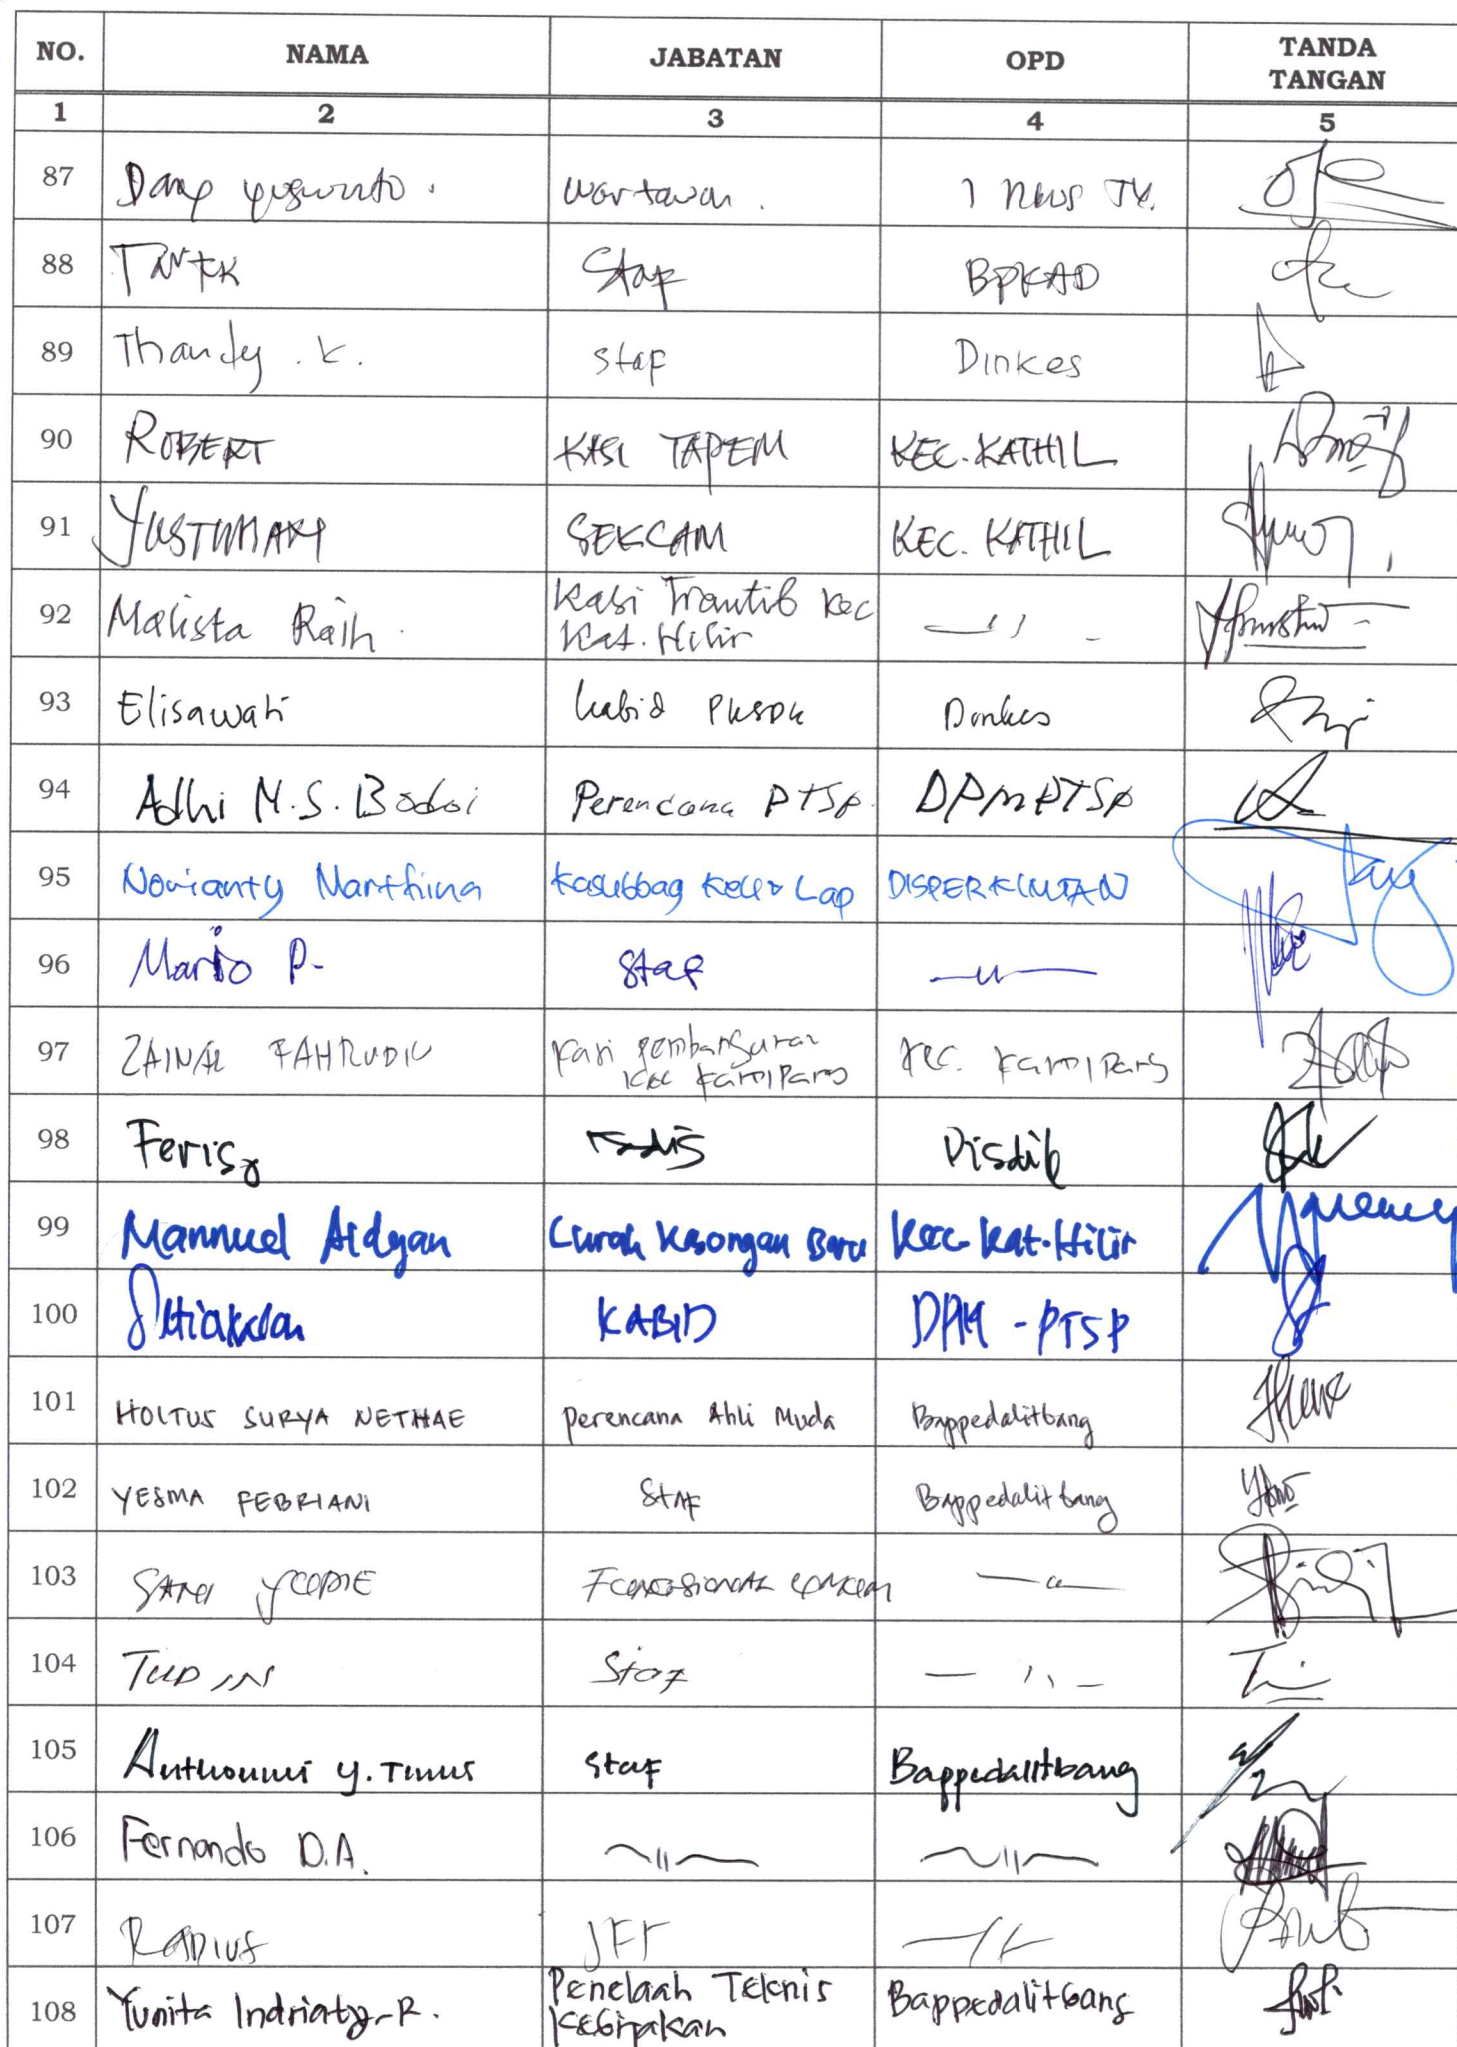 NO. NAMA JABATAN OPD TANDA TANGAN
1 2 3 4 5
87 Dang wartawan. I News TV.
88 Staf BPKAD
89 Thandy . K. Staf Dinkes
90 ROBERT KASI TAPEM KEC. KATHIL
91 SEKCAM KEC. KATHIL
92 Malista Raih Kasi Trantib Kec Kat. Hilir — ıı –
93 Elisawati Kabid Dinkes
94 Adhi M.S. Perencana PTSP. DPMPTSP
95 Novianty Marthina Kasubbag Lap DISPERKIMTAN
96 Mario P. Staf — ıı —
97 ZAINAL FAHRUDIN Kasi Pembangunan Kec Kamipang Kec. Kamipang
98 Disdik
99 Mannuel Aldyan Lurah Kasongan Baru Kec. Kat. Hilir
100 KABID DPM - PTSP
101 HOLTUS SURYA NETHAE Perencana Ahli Muda Bappedalitbang
102 YESMA FEBRIANI Staf Bappedalitbang
103 — ıı —
104 Staf — ıı –
105 Staf Bappedalitbang
106 Fernando D.A. — ıı — — ıı —
107 RADIUS JFT — ıı —
108 Yunita Indriaty.R. Penelaah Teknis Kebijakan Bappedalitbang